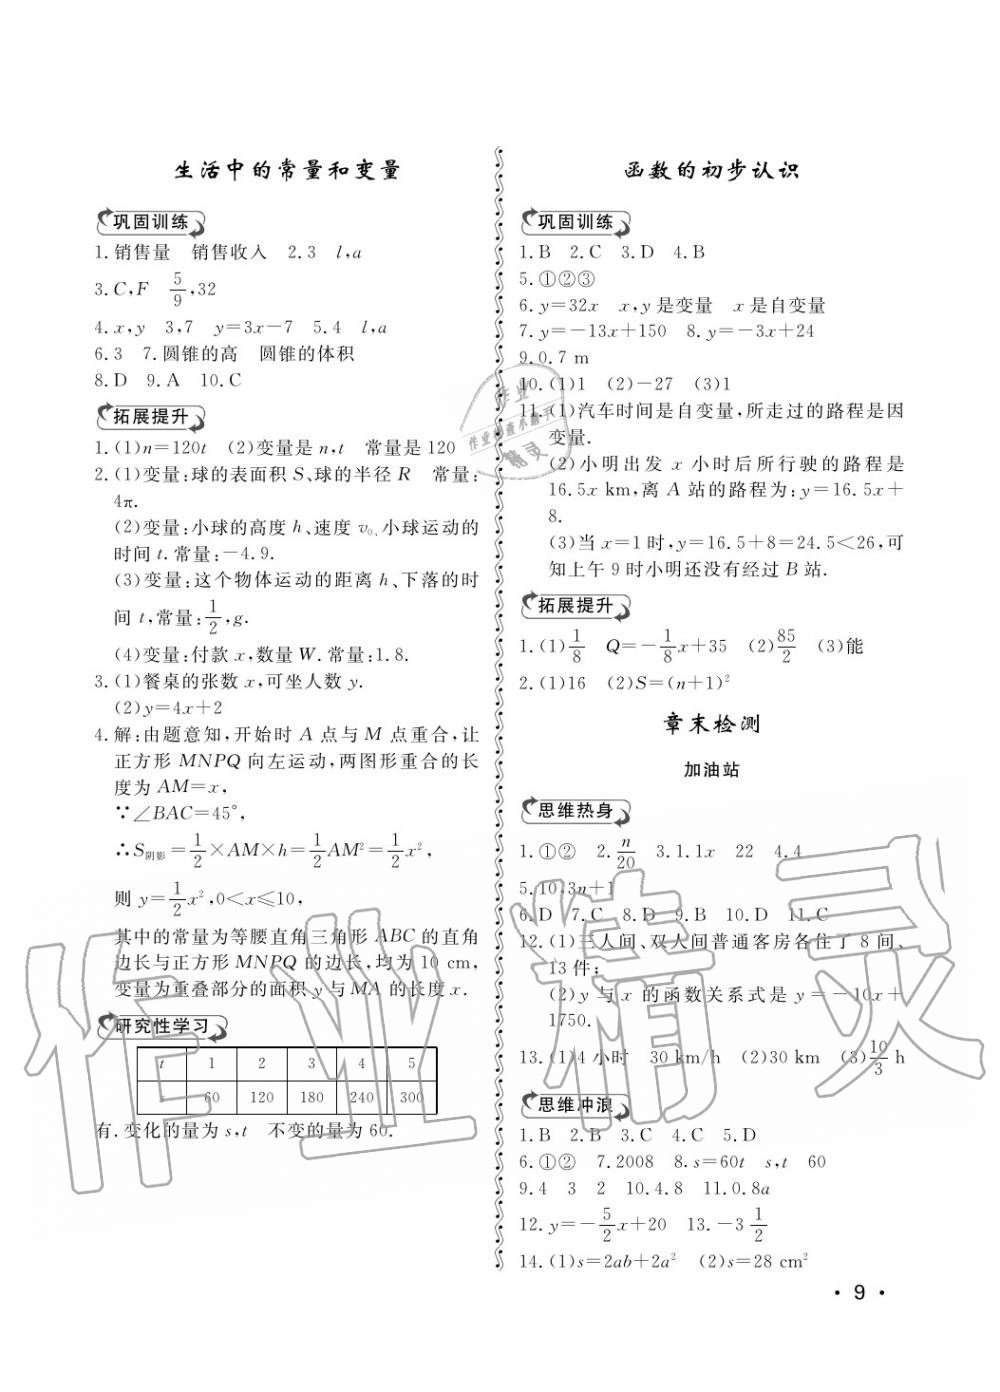 生活中的常量和变量
巩固训练
1.销售量 销售收入 2.3 l,a
3.C,F 5/9,32
4.x,y 3,7 y=3x-7 5.4 l,a
6.3 7.圆锥的高 圆锥的体积
8.D 9.A 10.C
拓展提升
1.(1)n=120t (2)变量是n,t 常量是120
2.(1)变量:球的表面积S、球的半径R 常量:
4π.
(2)变量:小球的高度h、速度v₀、小球运动的
时间t.常量:-4.9.
(3)变量:这个物体运动的距离h、下落的时
间t,常量:1/2,g.
(4)变量:付款x,数量W.常量:1.8.
3.(1)餐桌的张数x,可坐人数y.
(2)y=4x+2
4.解:由题意知,开始时A点与M点重合,让
正方形MNPQ向左运动,两图形重合的长
度为AM=x,
∵∠BAC=45°,
∴S阴影=1/2×AM×h=1/2AM²=1/2x²,
则y=1/2x²,0<x≤10,
其中的常量为等腰直角三角形ABC的直角
边长与正方形MNPQ的边长,均为10 cm,
变量为重叠部分的面积y与MA的长度x.
研究性学习
t 1 2 3 4 5
s 60 120 180 240 300
有.变化的量为s,t 不变的量为60.
函数的初步认识
巩固训练
1.B 2.C 3.D 4.B
5.①②③
6.y=32x x,y是变量 x是自变量
7.y=-13x+150 8.y=-3x+24
9.0.7 m
10.(1)1 (2)-27 (3)1
11.(1)汽车时间是自变量,所走过的路程是因
变量.
(2)小明出发x小时后所行驶的路程是
16.5x km,离A站的路程为:y=16.5x+
8.
(3)当x=1时,y=16.5+8=24.5<26,可
知上午9时小明还没有经过B站.
拓展提升
1.(1)1/8 Q=-1/8x+35 (2)85/2 (3)能
2.(1)16 (2)S=(n+1)²
章末检测
加油站
思维热身
1.①② 2.n/20 3.1.1x 22 4.4
5.10,3n+1
6.D 7.C 8.D 9.B 10.D 11.C
12.(1)三人间、双人间普通客房各住了8间、
13件;
(2)y与x的函数关系式是y=-10x+
1750.
13.(1)4小时 30 km/h (2)30 km (3)10/3 h
思维冲浪
1.B 2.B 3.C 4.C 5.D
6.①② 7.2008 8.s=60t s,t 60
9.4 3 2 10.4.8 11.0.8a
12.y=-5/2x+20 13.-3 1/2
14.(1)s=2ab+2a² (2)s=28 cm²
·9·
作业精灵